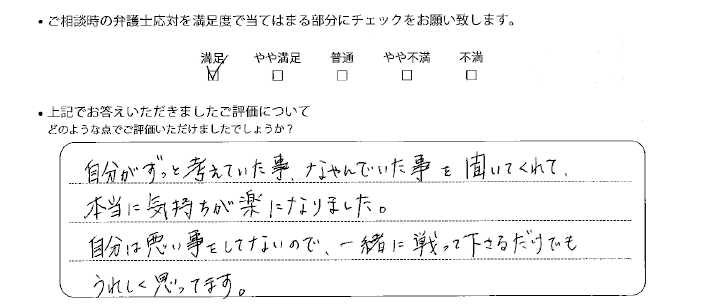 ・ご相談時の弁護士応対を満足度で当てはまる部分にチェックをお願い致します。
満足 やや満足 普通 やや不満 不満
☑ □ □ □ □
・上記でお答えいただきましたご評価について
どのような点でご評価いただけましたでしょうか?
自分がずっと考えていた事、なやんでいた事を聞いてくれて、
本当に気持ちが楽になりました。
自分は悪い事をしてないので、一緒に戦って下さるだけでも
うれしく思ってます。